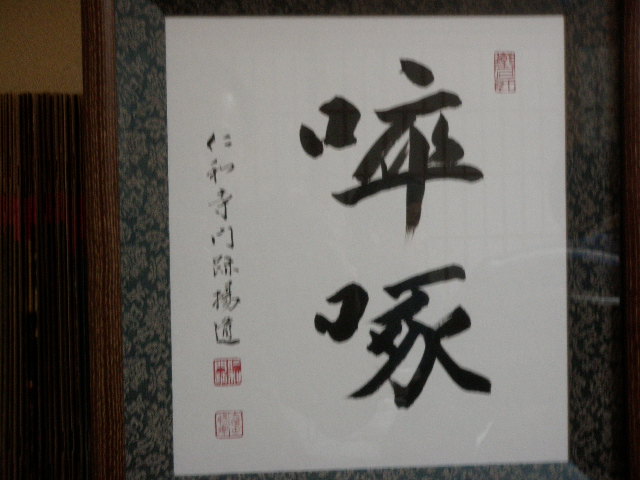 啐啄
仁和寺門跡揚道